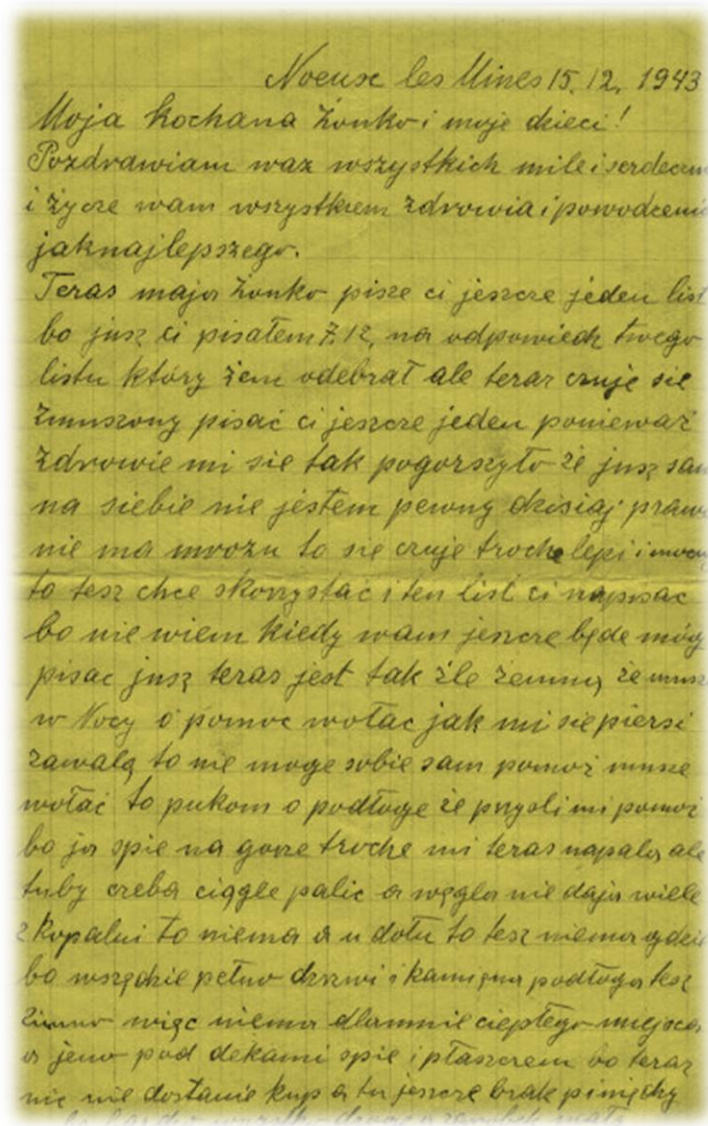 Noeux les Mines 15.12. 1943
Moja kochana żonko i moje dzieci!
Pozdrawiam waz wszystkich mile i serdeczn
i życze wam wszystkiem zdrowia i powodzenia
jaknajlepszego.
Teras moja żonko pisze ci jeszcze jeden list
bo jusz ci pisałem 7.12, na odpowiedz twego
listu który żem odebrał ale teraz czuje sie
zmuszony pisać ci jeszcze jeden ponieważ
zdrowie mi sie tak pogorszyło że jusz sam
na siebie nie jestem pewny dzisiaj prawi
nie ma mrozu to sie czuje troche lepi i
to tesz chce skorzystać i ten list ci napisac
bo nie wiem kiedy wam jeszcze będe móg
pisac jusz teras jest tak źle zemną że musz
w Nocy o pomoc wołac jak mi sie piersi
zawalą to nie moge sobie sam pomoż musze
wołać to pukom o podłoge że przyśli mi pomoż
bo ja spie na gorze troche mi teras napalą ale
tuby czeba ciągle palic a węgla nie dają wiele
z kopalni to niema a u dołu to tesz niema gdzie
bo wszędzie pełno drzwi i kamięna podłoga tesz
zimno więc niema dlamnie ciepłego miejsca
a jeno pod dekami spie i płaszczem bo teraz
nic nie dostanie kup a tu jeszcze brak pinięchy